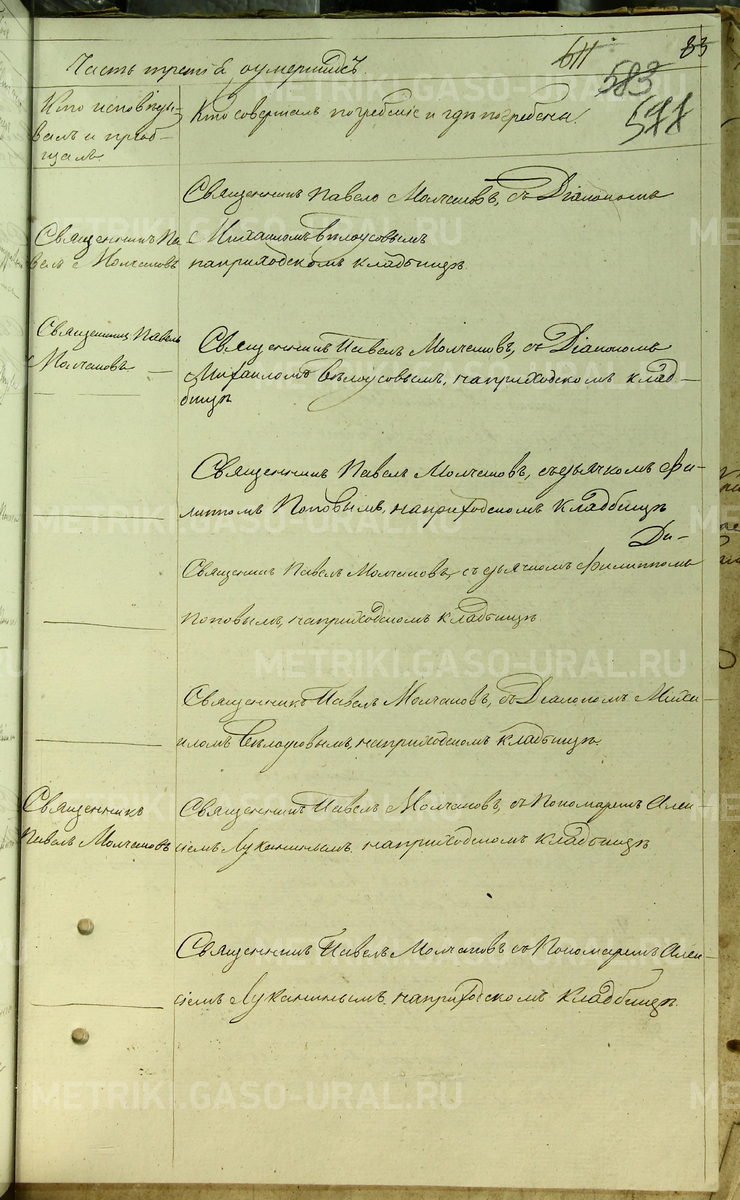 83
611
583
577
Часть третія о умершихъ.
Кто исповѣды-
валъ и пріоб-
щалъ.
Кто совершалъ погребеніе и гдѣ погребены
Священникъ Павелъ Молчановъ, съ Діакономъ
Михаиломъ Бѣлоусовымъ
на приходскомъ кладбищѣ.
Священникъ Па-
велъ Молчановъ
Священникъ Павелъ
Молчановъ
Священникъ Павелъ Молчановъ, съ Діакономъ
Михаиломъ Бѣлоусовымъ, на приходскомъ клад-
бищѣ
Священникъ Павелъ Молчановъ, съ дьячкомъ Фи-
липпомъ Поповымъ, на приходскомъ кладбищѣ
Ди-
Священникъ Павелъ Молчановъ, съ дьячкомъ Филиппомъ
Поповымъ, на приходскомъ кладбищѣ
Священникъ Павелъ Молчановъ, съ Діакономъ Миха-
иломъ Бѣлоусовымъ, на приходскомъ кладбищѣ.
Священникъ
Павелъ Молчановъ
Священникъ Павелъ Молчановъ, съ Пономаремъ Алек-
сіемъ Лукининымъ на приходскомъ кладбищѣ
Священникъ Павелъ Молчановъ съ Пономаремъ Алек-
сіемъ Лукининымъ на приходскомъ кладбищѣ.
METRIKI.GASO-URAL.RU